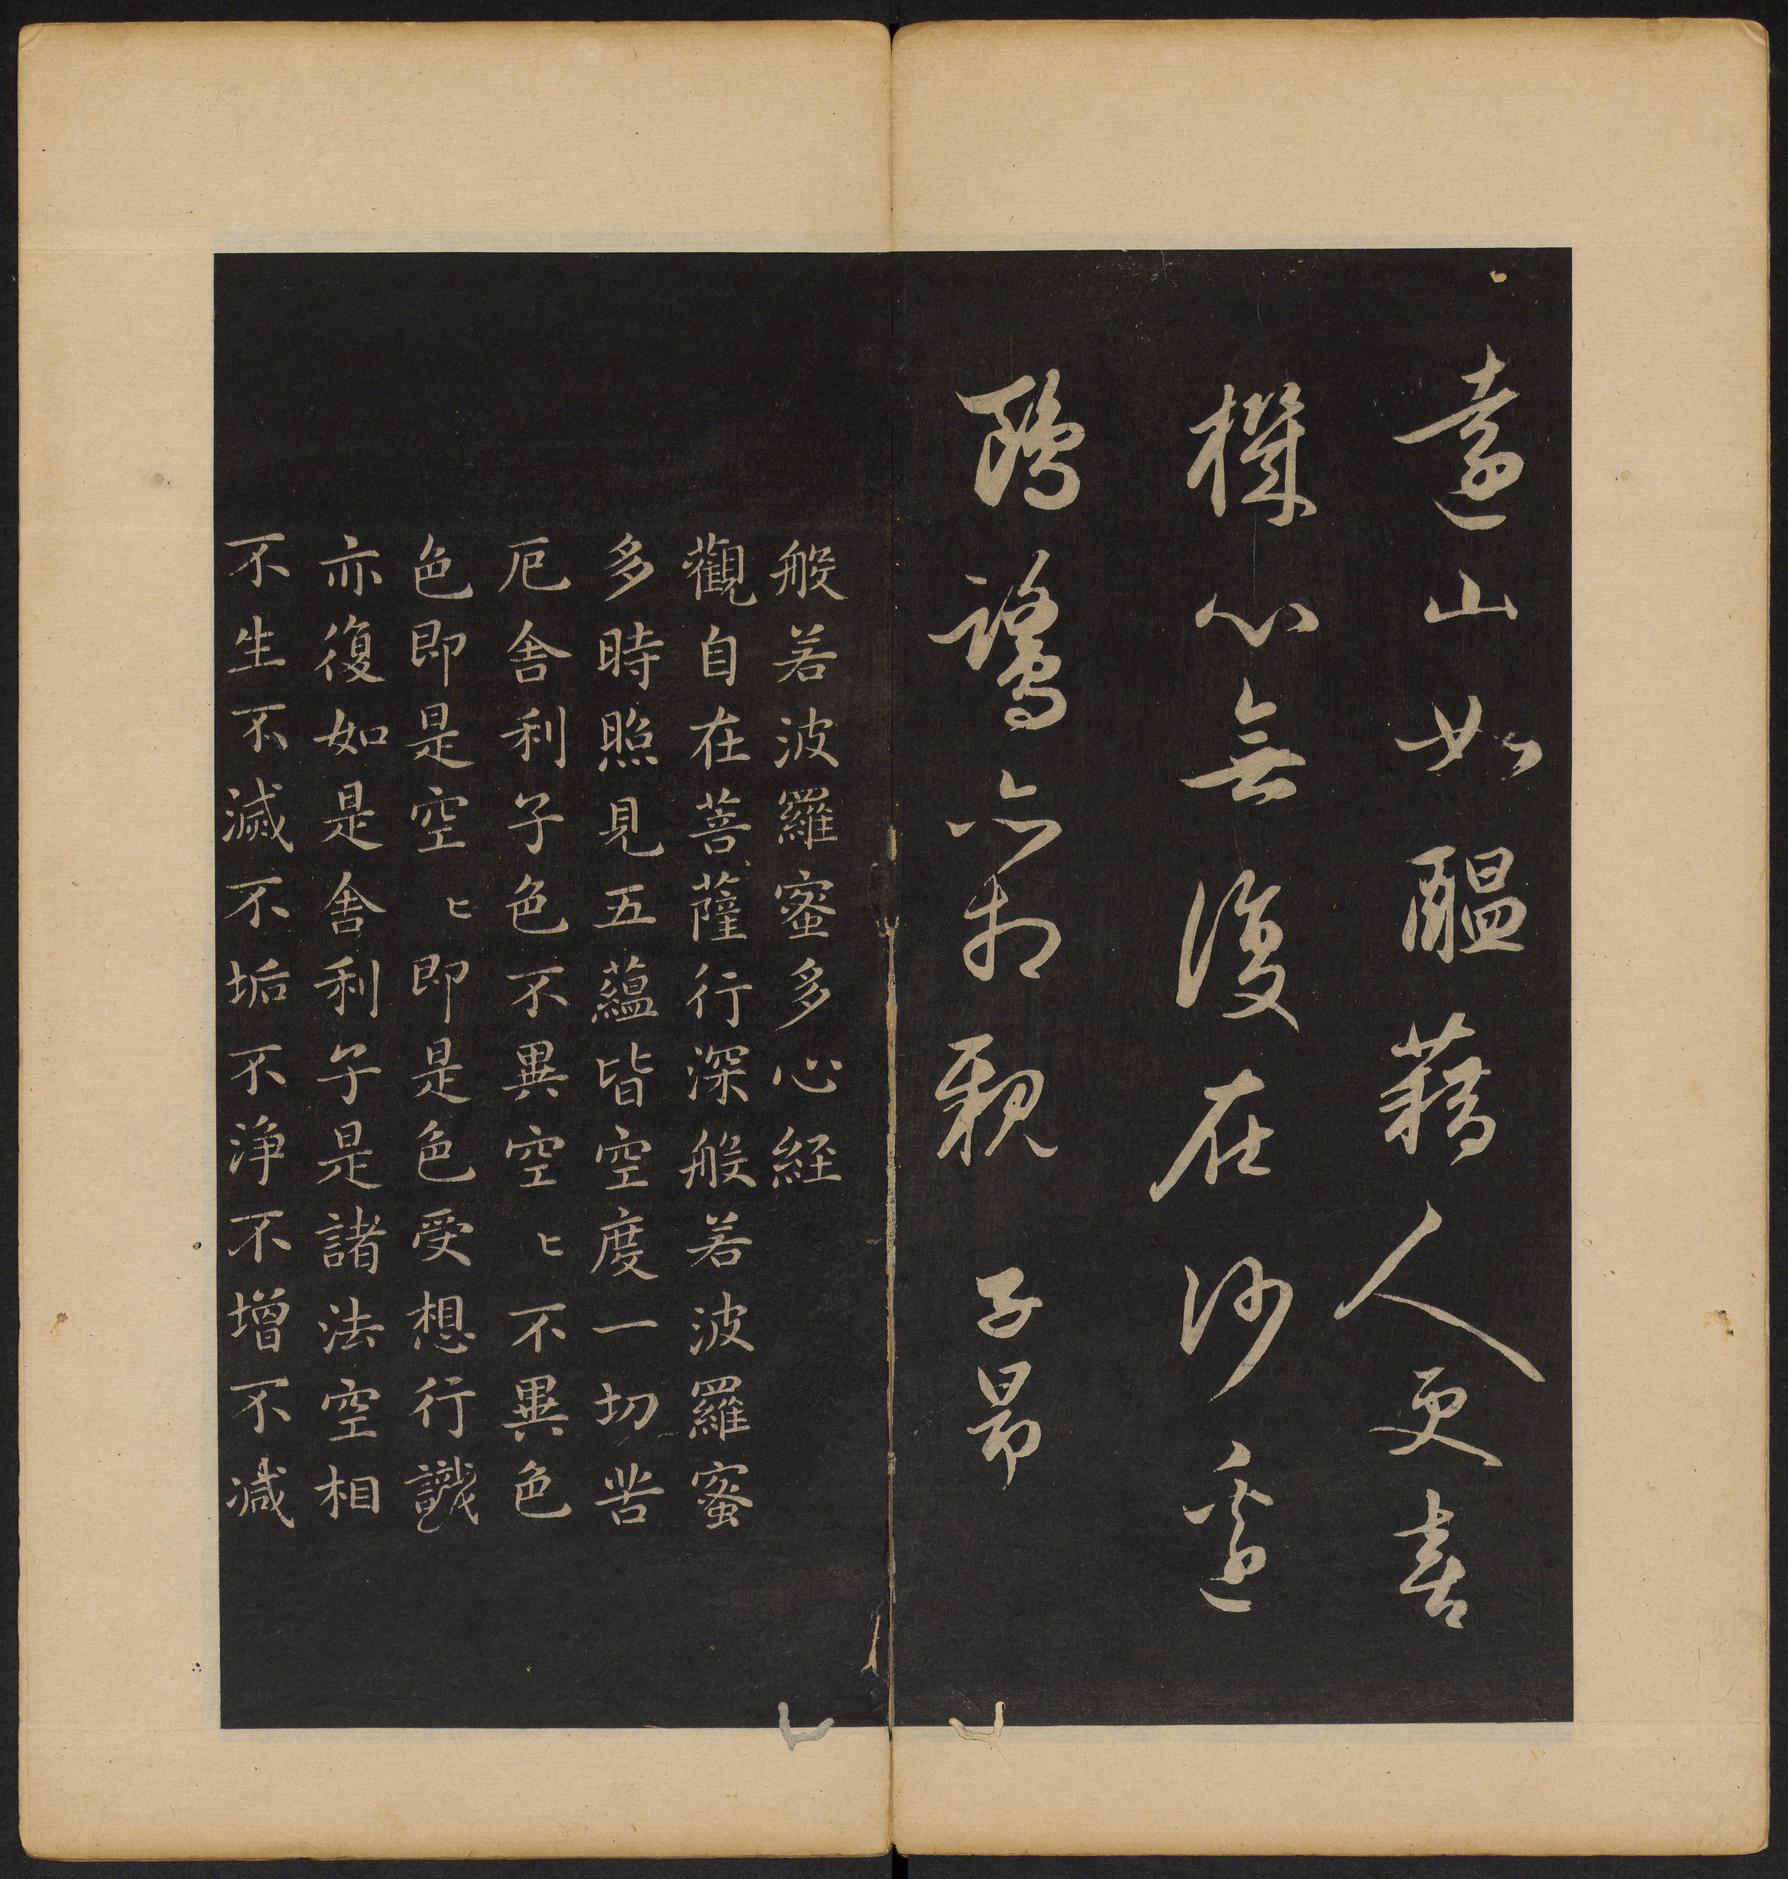 遠山如醞藉人更喜
機心無復在沙邊
鷗鷺亦相親 子昂
般若波羅蜜多心經
觀自在菩薩行深般若波羅蜜
多時照見五蘊皆空度一切苦
厄舍利子色不異空〻不異色
色即是空〻即是色受想行識
亦復如是舍利子是諸法空相
不生不滅不垢不淨不增不減